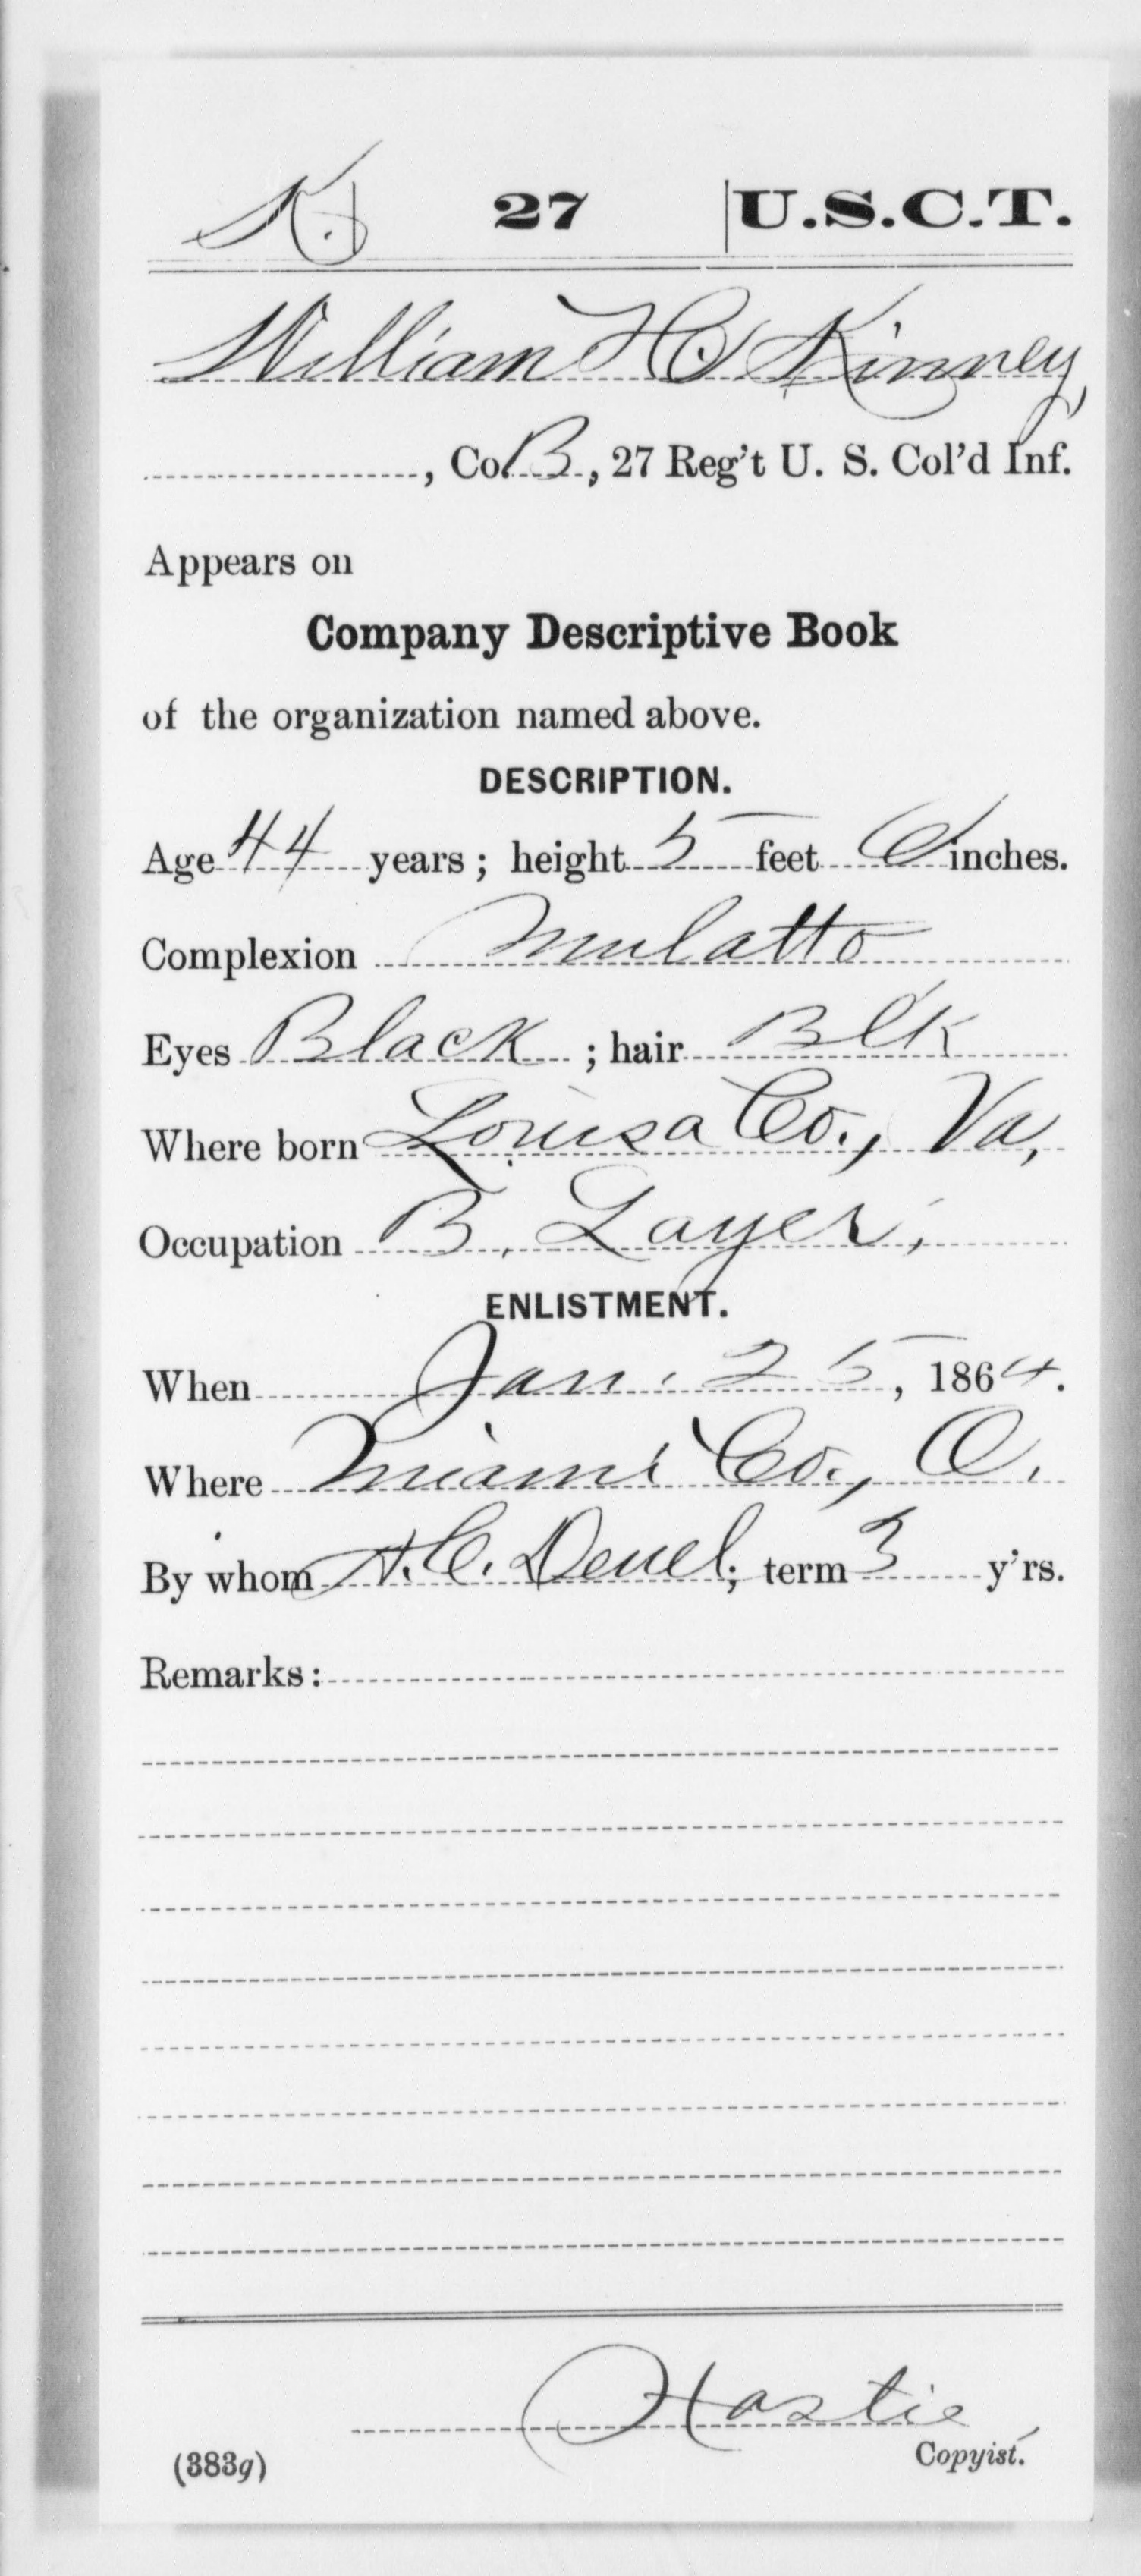 K. 27 U.S.C.T.
William H. Kinney,
, Co. B, 27 Reg't U. S. Col'd Inf.
Appears on
Company Descriptive Book
of the organization named above.
DESCRIPTION.
Age 44 years; height 5 feet 6 inches.
Complexion Mulatto
Eyes Black; hair Blk
Where born Louisa Co., Va,
Occupation B. Layer,
ENLISTMENT.
When Jan. 25, 1864.
Where Miami Co., O.
By whom H. C. Deuel; term 3 y'rs.
Remarks:
Hastie,
(383g) Copyist.